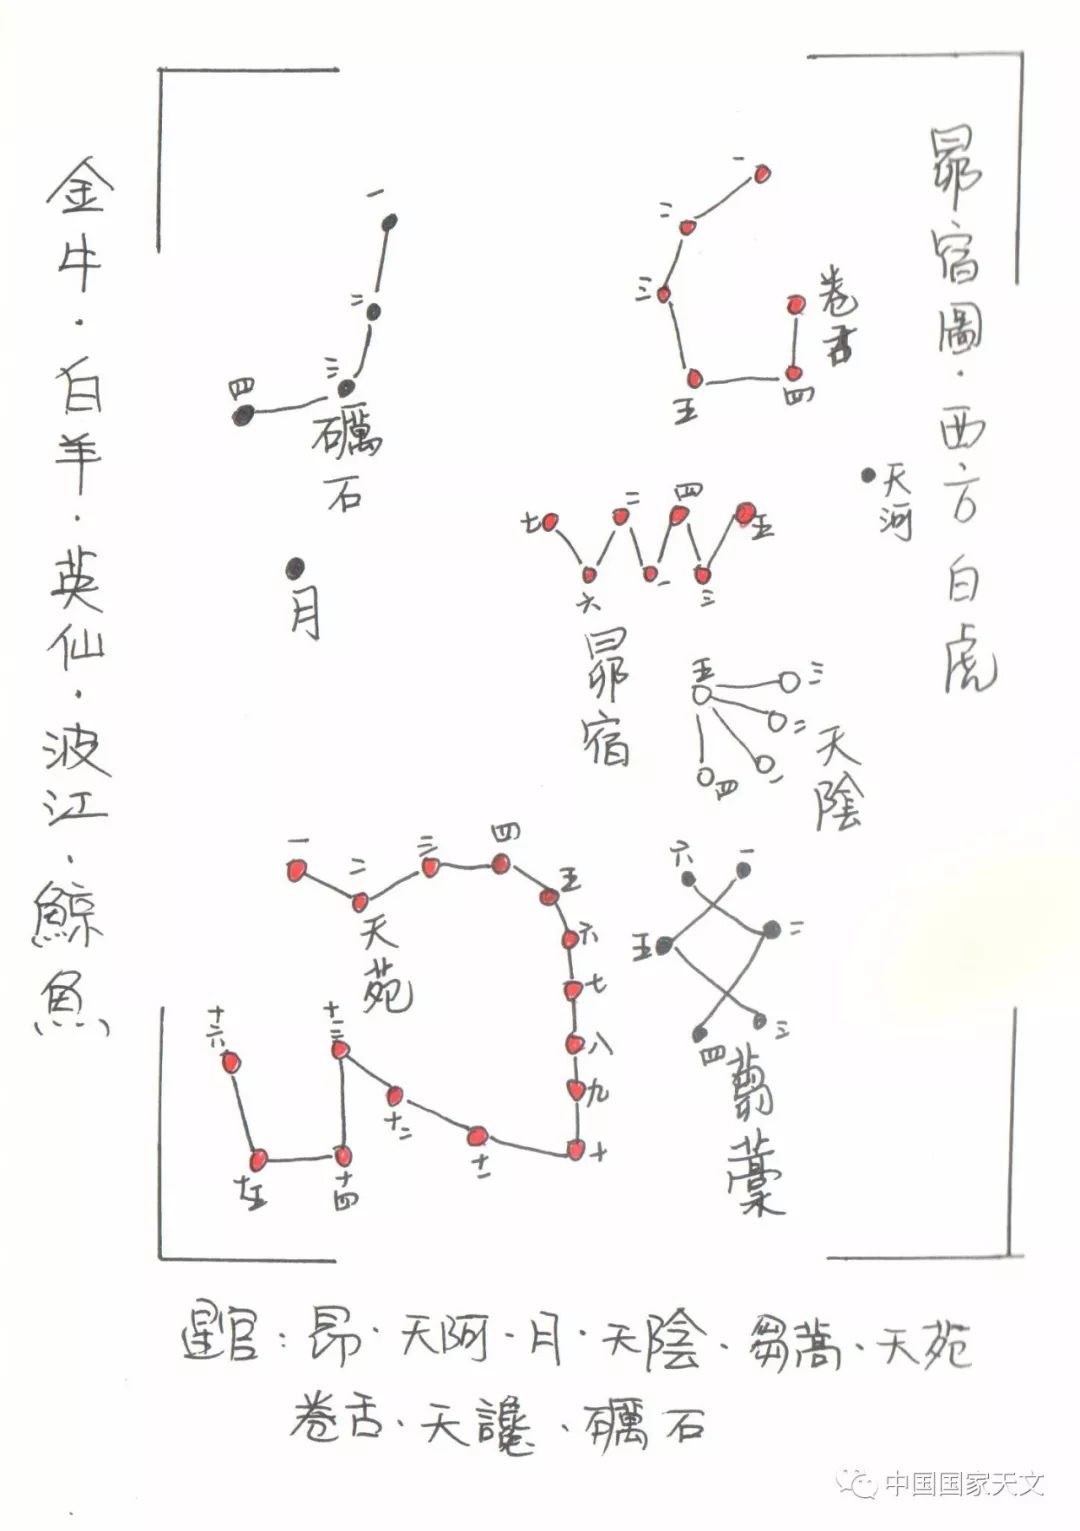 昴宿圖·西方白虎
金牛·白羊·英仙·波江·鯨魚
一
二
三
四
礪石
一
二
三
五
四
卷舌
天河
七
六
二
一
四
三
五
昴宿
月
五
三
二
一
四
天陰
一
二
三
四
五
六
七
八
九
十
十一
十二
十三
十四
十五
十六
天苑
六
一
五
二
四
三
芻藁
星官:昴·天阿·月·天陰·芻蒿·天苑
卷舌·天讒·礪石
中国国家天文